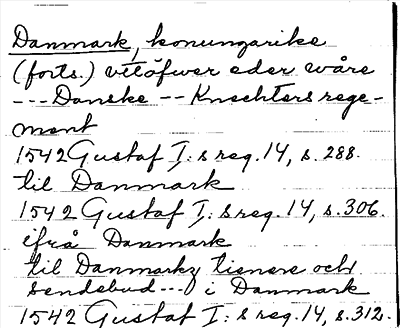 Danmark, konungarike
(forts.) vtöfwer eder wåre
---Danske -- Knechters rege-
ment
1542 Gustaf I:s reg. 14, s. 288.
til Danmark
1542 Gustaf I:s reg. 14, s. 306.
ifrå Danmark
til Danmarkz tienere och
sendebud --- i Danmark
1542 Gustaf I:s reg. 14, s. 312.